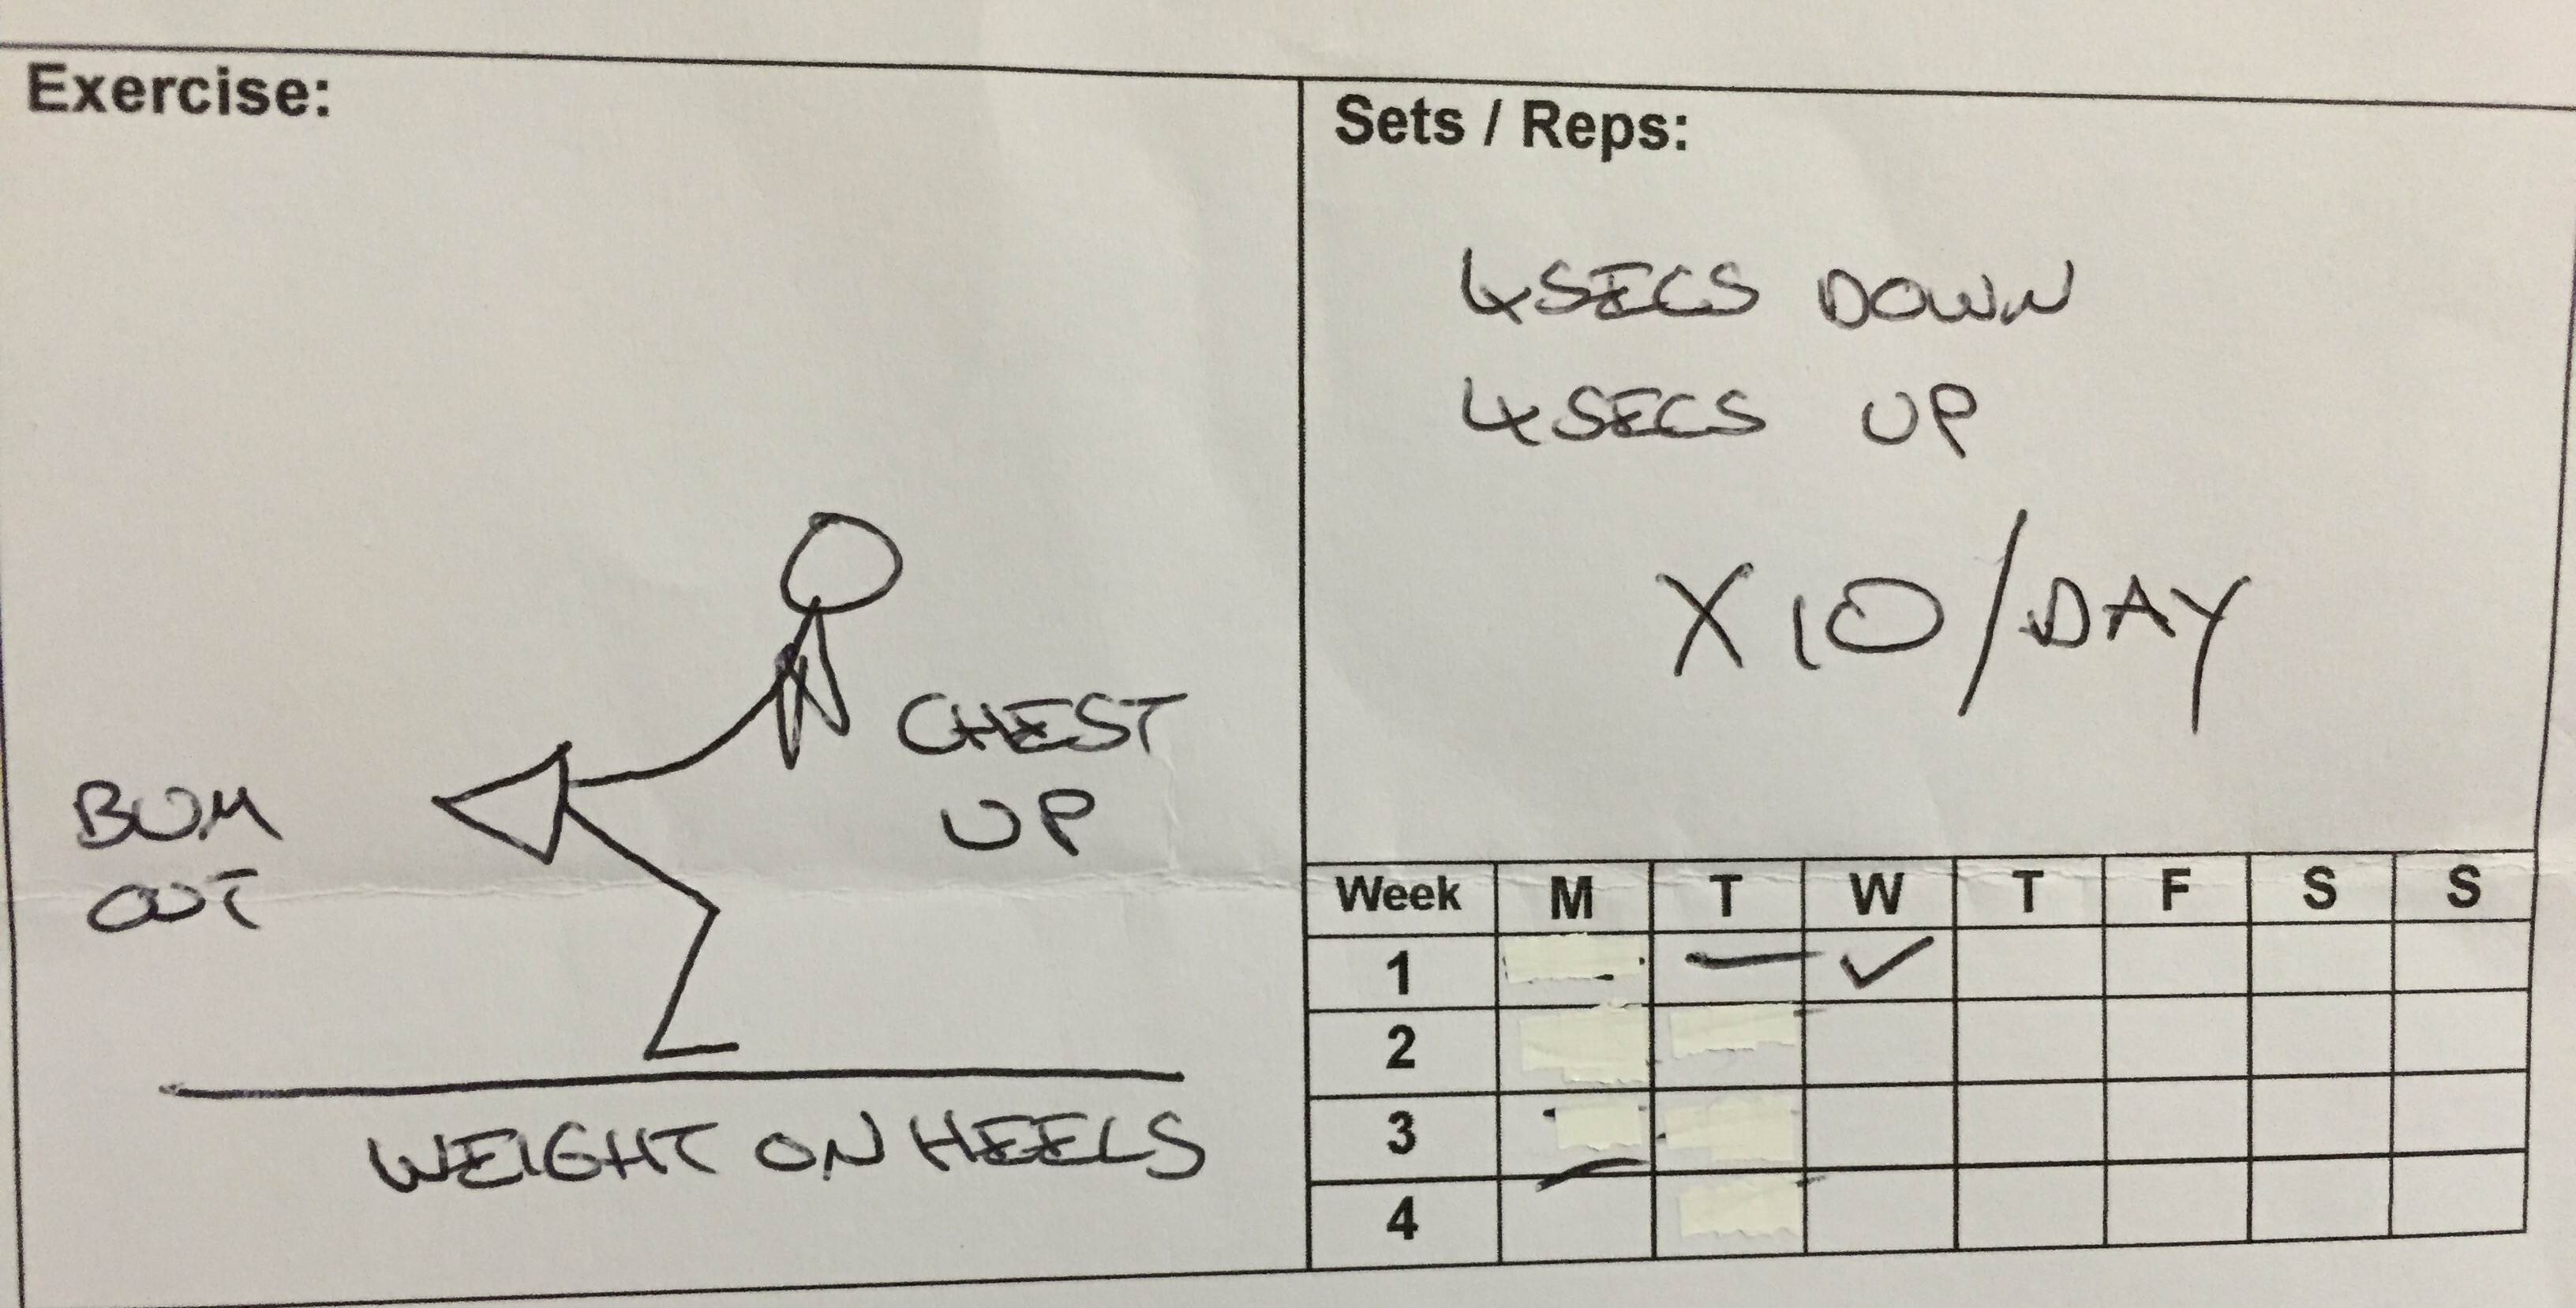 Exercise:
CHEST
UP
BUM
OUT
WEIGHT ON HEELS
Sets / Reps:
4 SECS DOWN
4 SECS UP
X 10 / DAY
Week M T W T F S S
1 — ✓
2
3
4